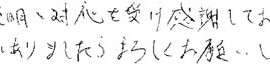 明に対応を受け感謝してお
ありましたらよろしくお願いし